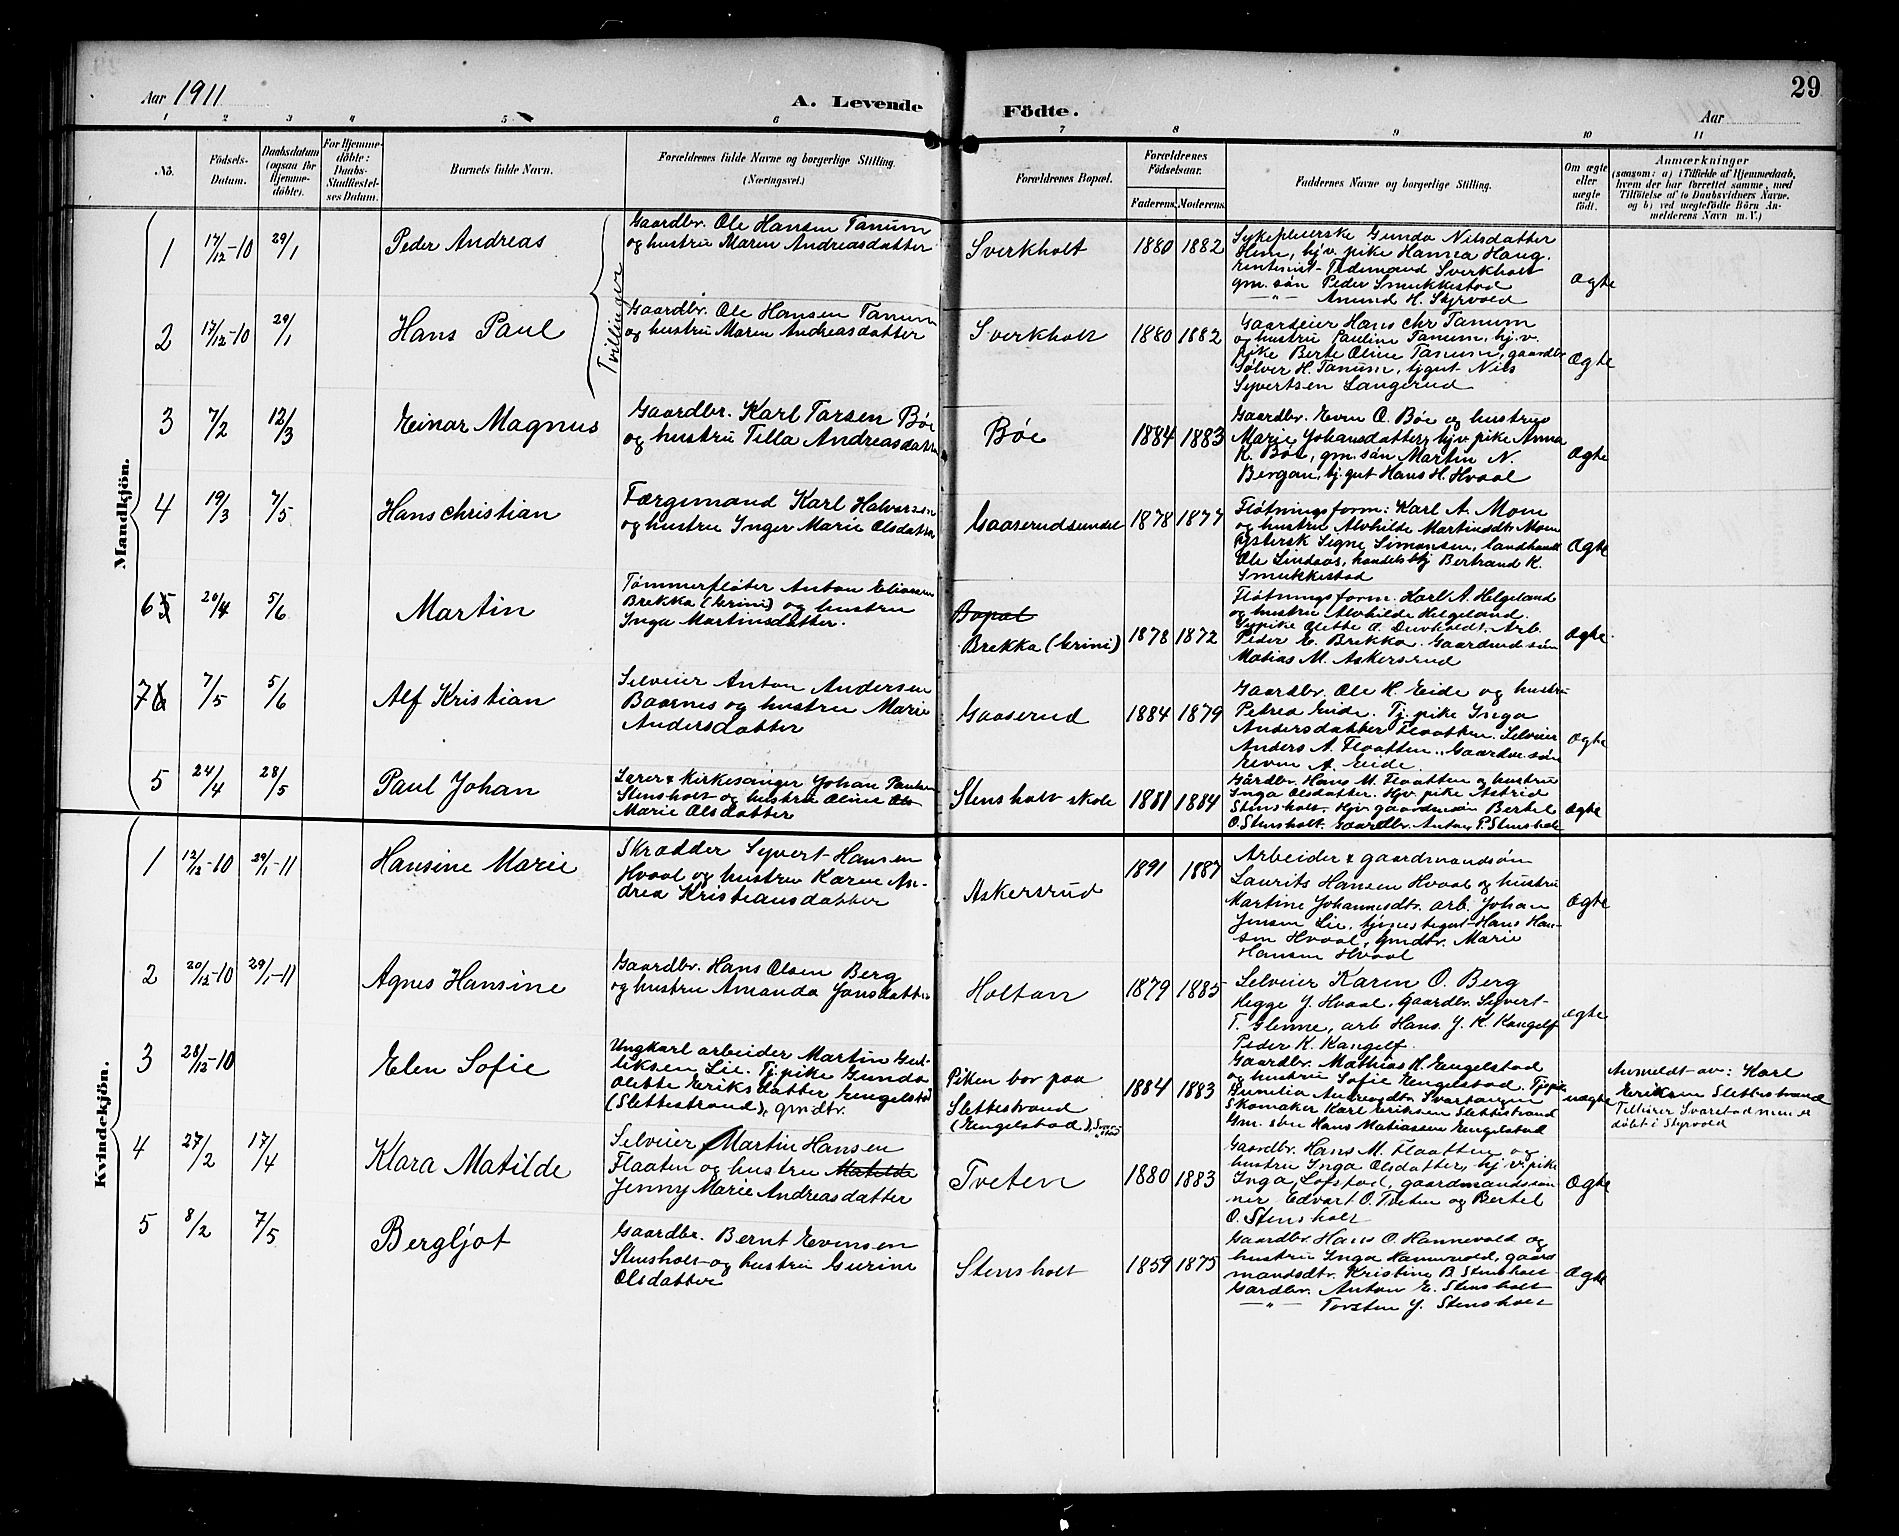 Aar 1911
A. Levende
Födte.
29
Aar
1 2 3 4 5 6 7 8 9 10 11
No.
Födsels-
Datum.
Daabsdatum
(ogsaa for
Hjemme-
döbte).
For Hjemme-
döbte:
Daabs-
Stadfæstel-
ses Datum.
Barnets fulde Navn.
Forældrenes fulde Navne og borgerlige Stilling.
(Næringsvei.)
Forældrenes Bopæl.
Forældrenes
Födselsaar.
Faderens. Moderens.
Faddernes Navne og borgerlige Stilling.
Om ægte
eller
uægte
født.
Anmærkninger
(saasom: a) i Tilfælde af Hjemmedaab,
hvem der har forrettet samme, med
Tilføielse af to Daabsvidners Navne.
og b) ved uægtefödte Börn An-
melderens Navn m. V.)
Mandkjön.
1
17/12-10
29/1
Peder Andreas
Tvillinger
Gaardbr. Ole Hansen Tanum
og hustru Maren Andreasdatter
Sverkholt
1880 1882
Sykepleierske Gunda Nilsdatter
Hem, hjv. pike Hansea Haug.
rentenist Tidemand Sverkholt
gm. søn Peder Smukkestad
—"— Amund H. Styrvold
Ægte
2
17/12-10
29/1
Hans Paul
Gaardbr. Ole Hansen Tanum
og hustru Maren Andreasdatter
Sverkholt
1880 1882
Gaardeier Hans Chr Tanum
og hustru Pauline Tanum, hj.v.
pike Berte Oline Tanum, gaardbr
Sølver H. Tanum, tjgut Nils
Syvertsen Langerud
Ægte
3
7/2
12/3
Einar Magnus
Gaardbr. Karl Larsen Bøe
og hustru Tilla Andreasdatter
Bøe
1884 1883
Gaardbr. Even O. Bøe og hustrus
Marie Johansdatter, hjv. pike Anna
K. Bøe, gm. søn Martin N.
Bergan, tj. gut Hans H. Hvaal
Ægte
4
19/3
7/5
Hans Christian
Færgemand Karl Halvorsen
og hustru Inger Marie Olsdatter
Gaaserudsundet
1878 1877
Fløtningsform: Karl A. Moen
og hustru Alvhilde Martinsdtr Moen
Signe Simonsen, landhandl
Ole Lindaas, handelsbtj Bertrand K.
Smukkestad
Ægte
6 5
20/4
5/6
Martin
Tømmerfløter Anton Eliassen
Brekka (Grini) og hustru
Inga Martinsdatter.
Bopæl
Brekka (Grini)
1878 1872
Fløtningsform. Karl A. Helgeland
og hustru Alvhilde Helgeland.
Tj pike Olette A. Duvholdt. Arb.
Peder E. Brekka. Gaardmds søn
Matias M. Askersrud
Ægte
7 6
7/5
5/6
Alf Kristian
Selveier Anton Andersen
Baarnes og hustru Marie
Andersdatter
Gaaserud
1884 1879
Gaardbr. Ole H. Eide og hustru
Petrea Eide. Tj. pike Inga
Andersdatter Flaatten. Selveier
Anders A. Flaatten. Gaardm. søn
Even A. Eide.
Ægte
5
24/4
28/5
Paul Johan
Lærer & Kirkesanger Johan Paulsen
Stensholt og hustru Oline Ols
Marie Olsdatter
Stensholt skole
1881 1884
Gårdbr. Hans M. Flaatten og hustru
Inga Olsdatter. Hjv. pike Astrid
Stensholt. Hjv. gaardm.søn Bertel
O. Stensholt. Gaardbr. Anton P. Stensholt
Ægte
Kvindekjön.
1
12/12-10
29/1-11
Hansine Marie
Skrædder Syvert Hansen
Hvaal og hustru Karen An-
drea Kristiansdatter
Askersrud
1891 1887
Arbeider & gaardmandsøn
Laurits Hansen Hvaal og hustru
Martine Johannesdtr. arb. Johan
Jensen Lie, tjenestegut Hans Han-
sen Hvaal, Gmdtr. Marie
Hansen Hvaal
Ægte
2
20/12-10
29/1-11
Agnes Hansine
Gaardbr. Hans Olsen Berg
og hustru Amanda Jonsdatter
Holtan
1879 1885
Selveier Karen O. Berg
Hegge J. Hvaal, Gaardbr. Syvert
T. Glenne, arb Hans J. K. Kangelf
Peder K. Kangelf.
Ægte
3
28/12-10
Elen Sofie
Ungkarl arbeider Martin Gul-
liksen Lie. Tj. pike Gunda
Olette Eriksdatter Engelstad
(Slettestrand), gmdtr.
Piken bor paa
Slettestrand
(Engelstad),
1884 1883
Gaardbr. Mathias H. Engelstad
og hustru Sofie Engelstad. Tjpike
Bunilia Andreasdtr Svartangen
Skomaker Karl Eriksen Slettestrand
Gm. søn Hans Matiassen Engelstad
uægte
Anmeldt av: Karl
Eriksen Slettestrand
Tilhører Svarstad men er
døbt i Styrvold
4
27/2
17/4
Klara Matilde
Selveier Martin Hansen
Flaaten og hustru Matilde
Jenny Marie Andreasdatter
Tveten
1880 1883
Gaardbr. Hans M. Flaatten og
hustru Inga Olsdatter, hj v. pike
Inga Lofstad, gaardmandssøn-
ner Edvart O. Tveten og Bertel
O. Stensholt
Ægte
5
8/2
7/5
Bergljot
Gaardbr. Bernt Evensen
Stensholt og hustru Gurine
Olsdatter
Stensholt
1859 1875
Gaardbr. Hans O. Hannevold og
hustru Inga Hannevold, gaard
mandsdtr. Kristine B. Stensholt
Gardbr. Anton E. Stensholt
—"— Torsten J. Stensholt
Ægte